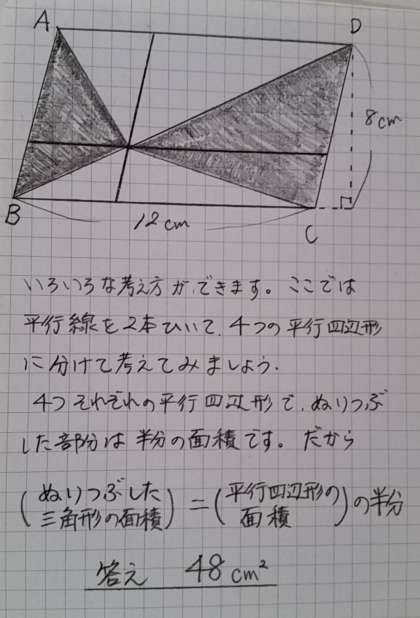 A
D
8cm
B
12cm
C
いろいろな考え方ができます。ここでは
平行線を2本ひいて、4つの平行四辺形
に分けて考えてみましょう.
4つそれぞれの平行四辺形で、ぬりつぶ
した部分は半分の面積です。だから
(ぬりつぶした
三角形の面積)=(平行四辺形の
面積)の半分
答え 48cm²